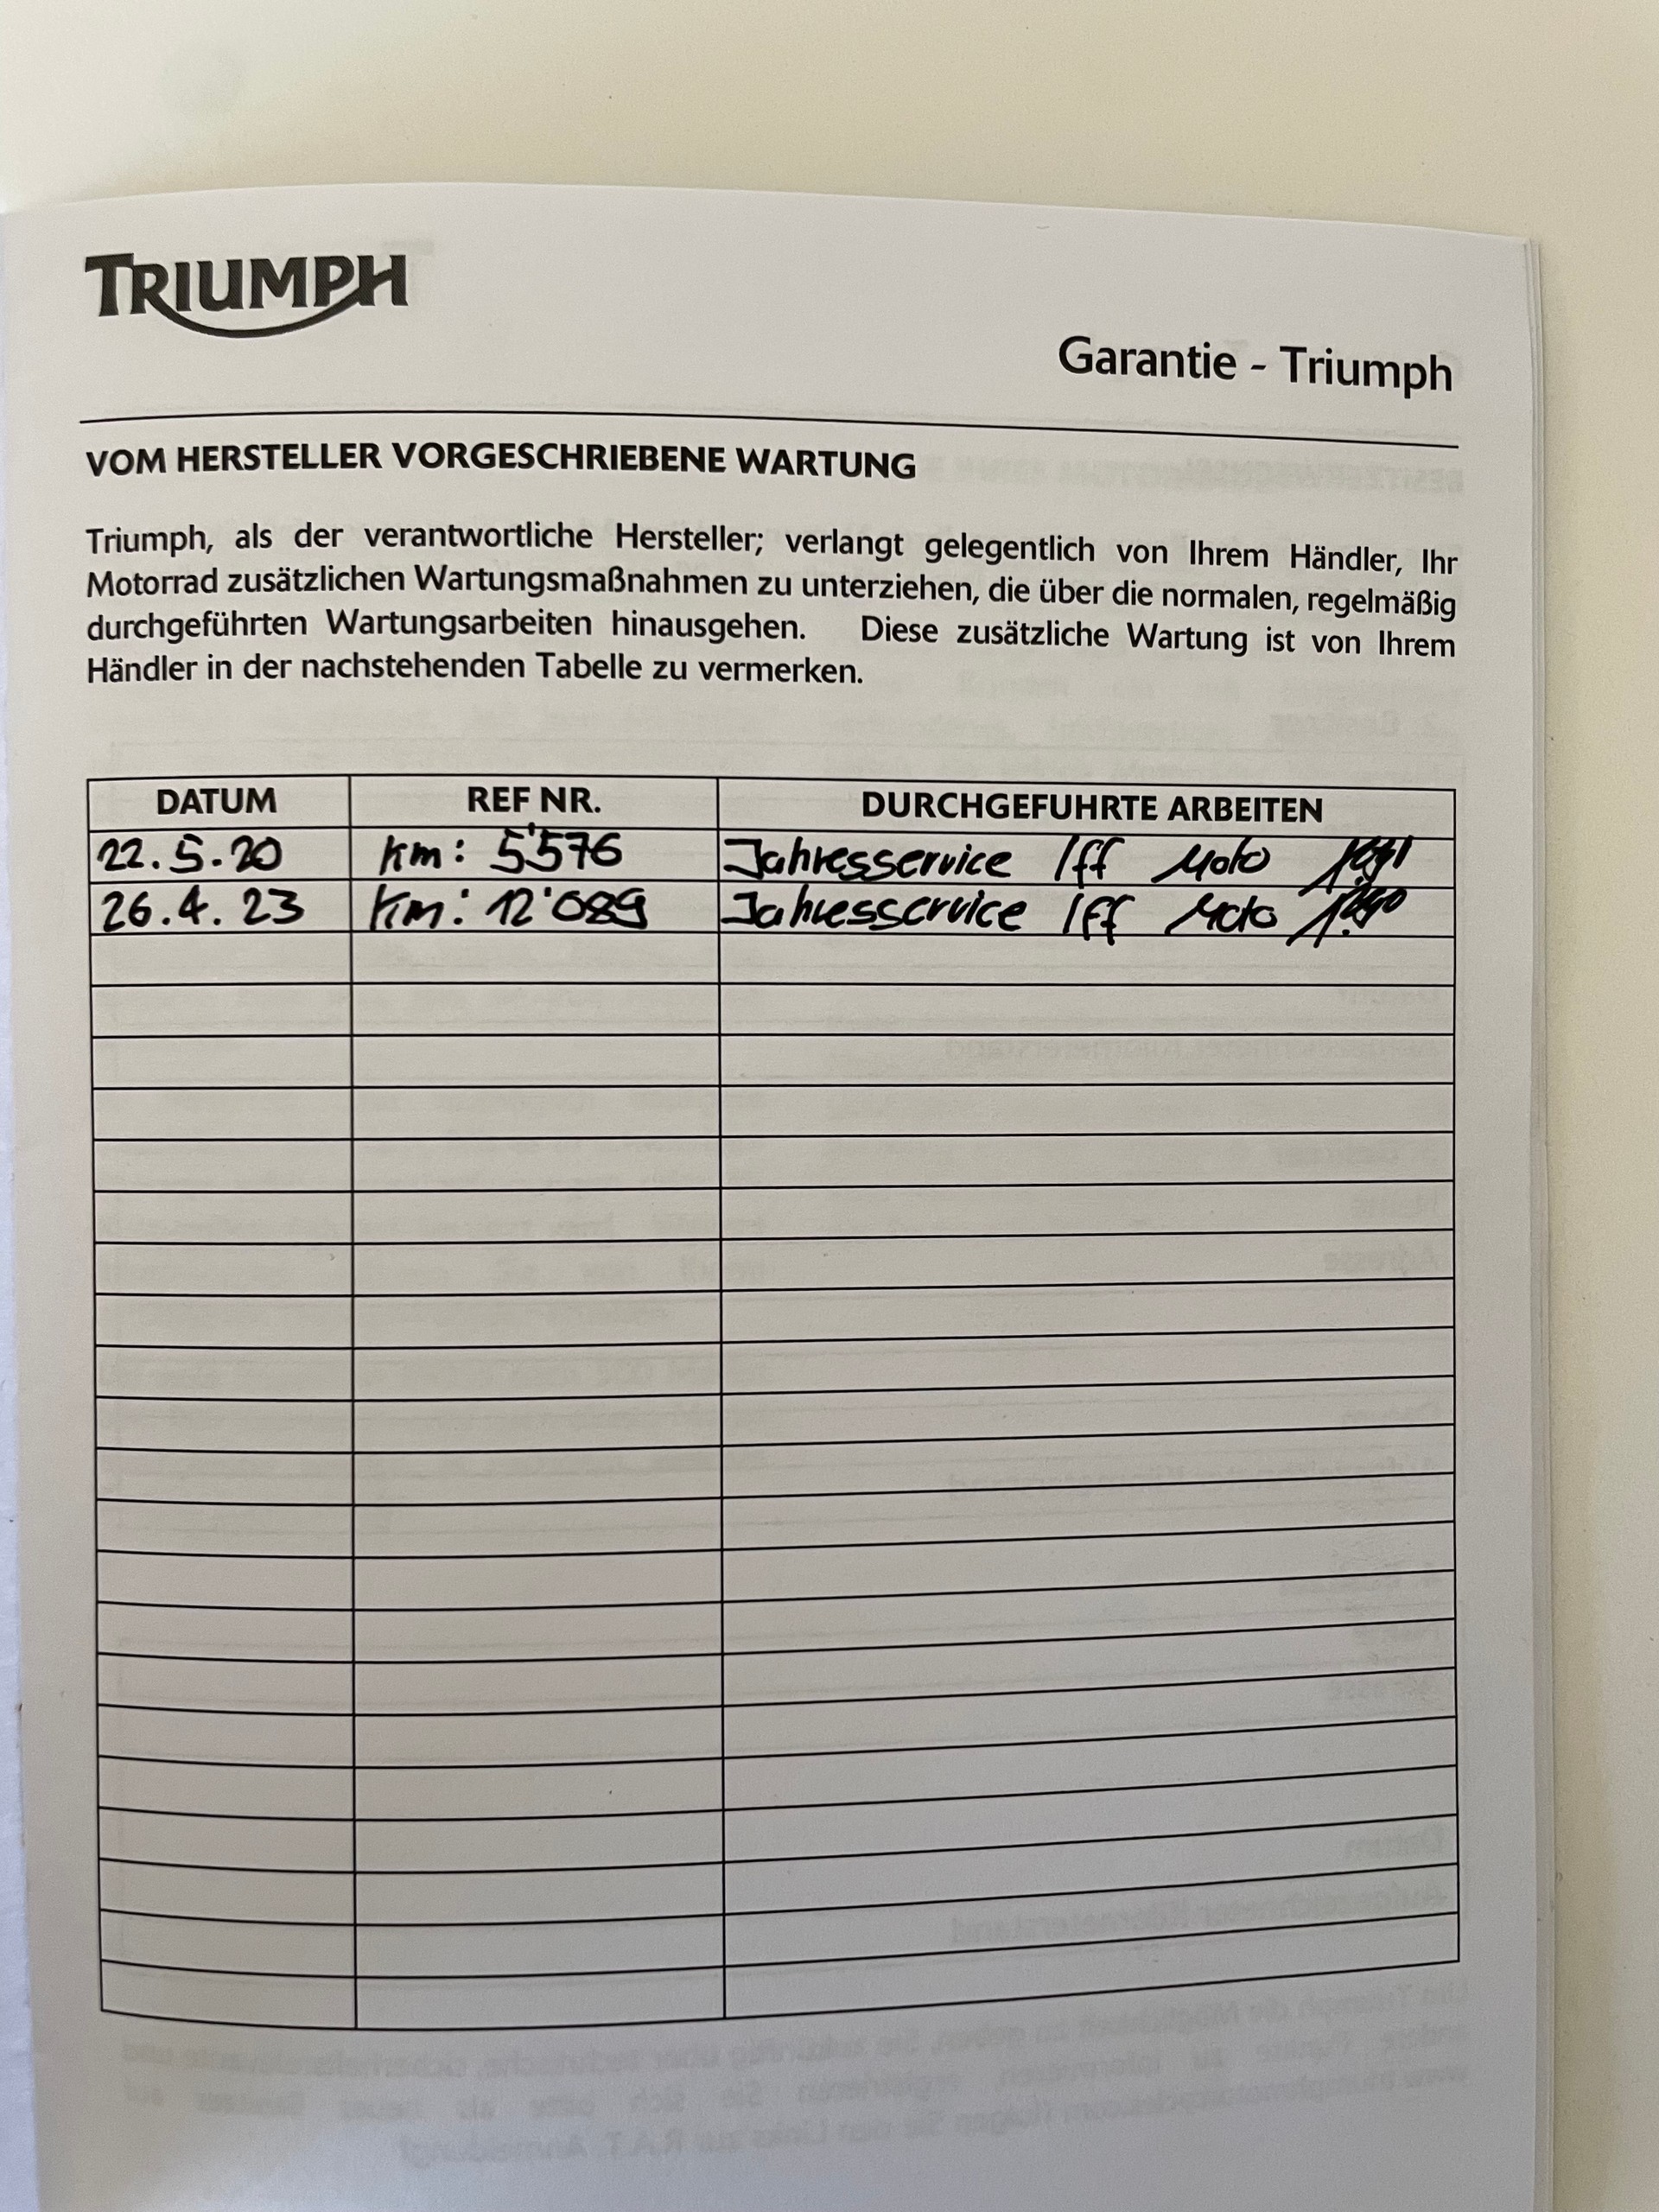 TRIUMPH
Garantie - Triumph
VOM HERSTELLER VORGESCHRIEBENE WARTUNG
Triumph, als der verantwortliche Hersteller; verlangt gelegentlich von Ihrem Händler, Ihr
Motorrad zusätzlichen Wartungsmaßnahmen zu unterziehen, die über die normalen, regelmäßig
durchgeführten Wartungsarbeiten hinausgehen. Diese zusätzliche Wartung ist von Ihrem
Händler in der nachstehenden Tabelle zu vermerken.
DATUM REF NR. DURCHGEFUHRTE ARBEITEN
22.5.20 Km: 5'576 Jahresservice Iff Moto
26.4.23 Km: 12'089 Jahresservice Iff Moto